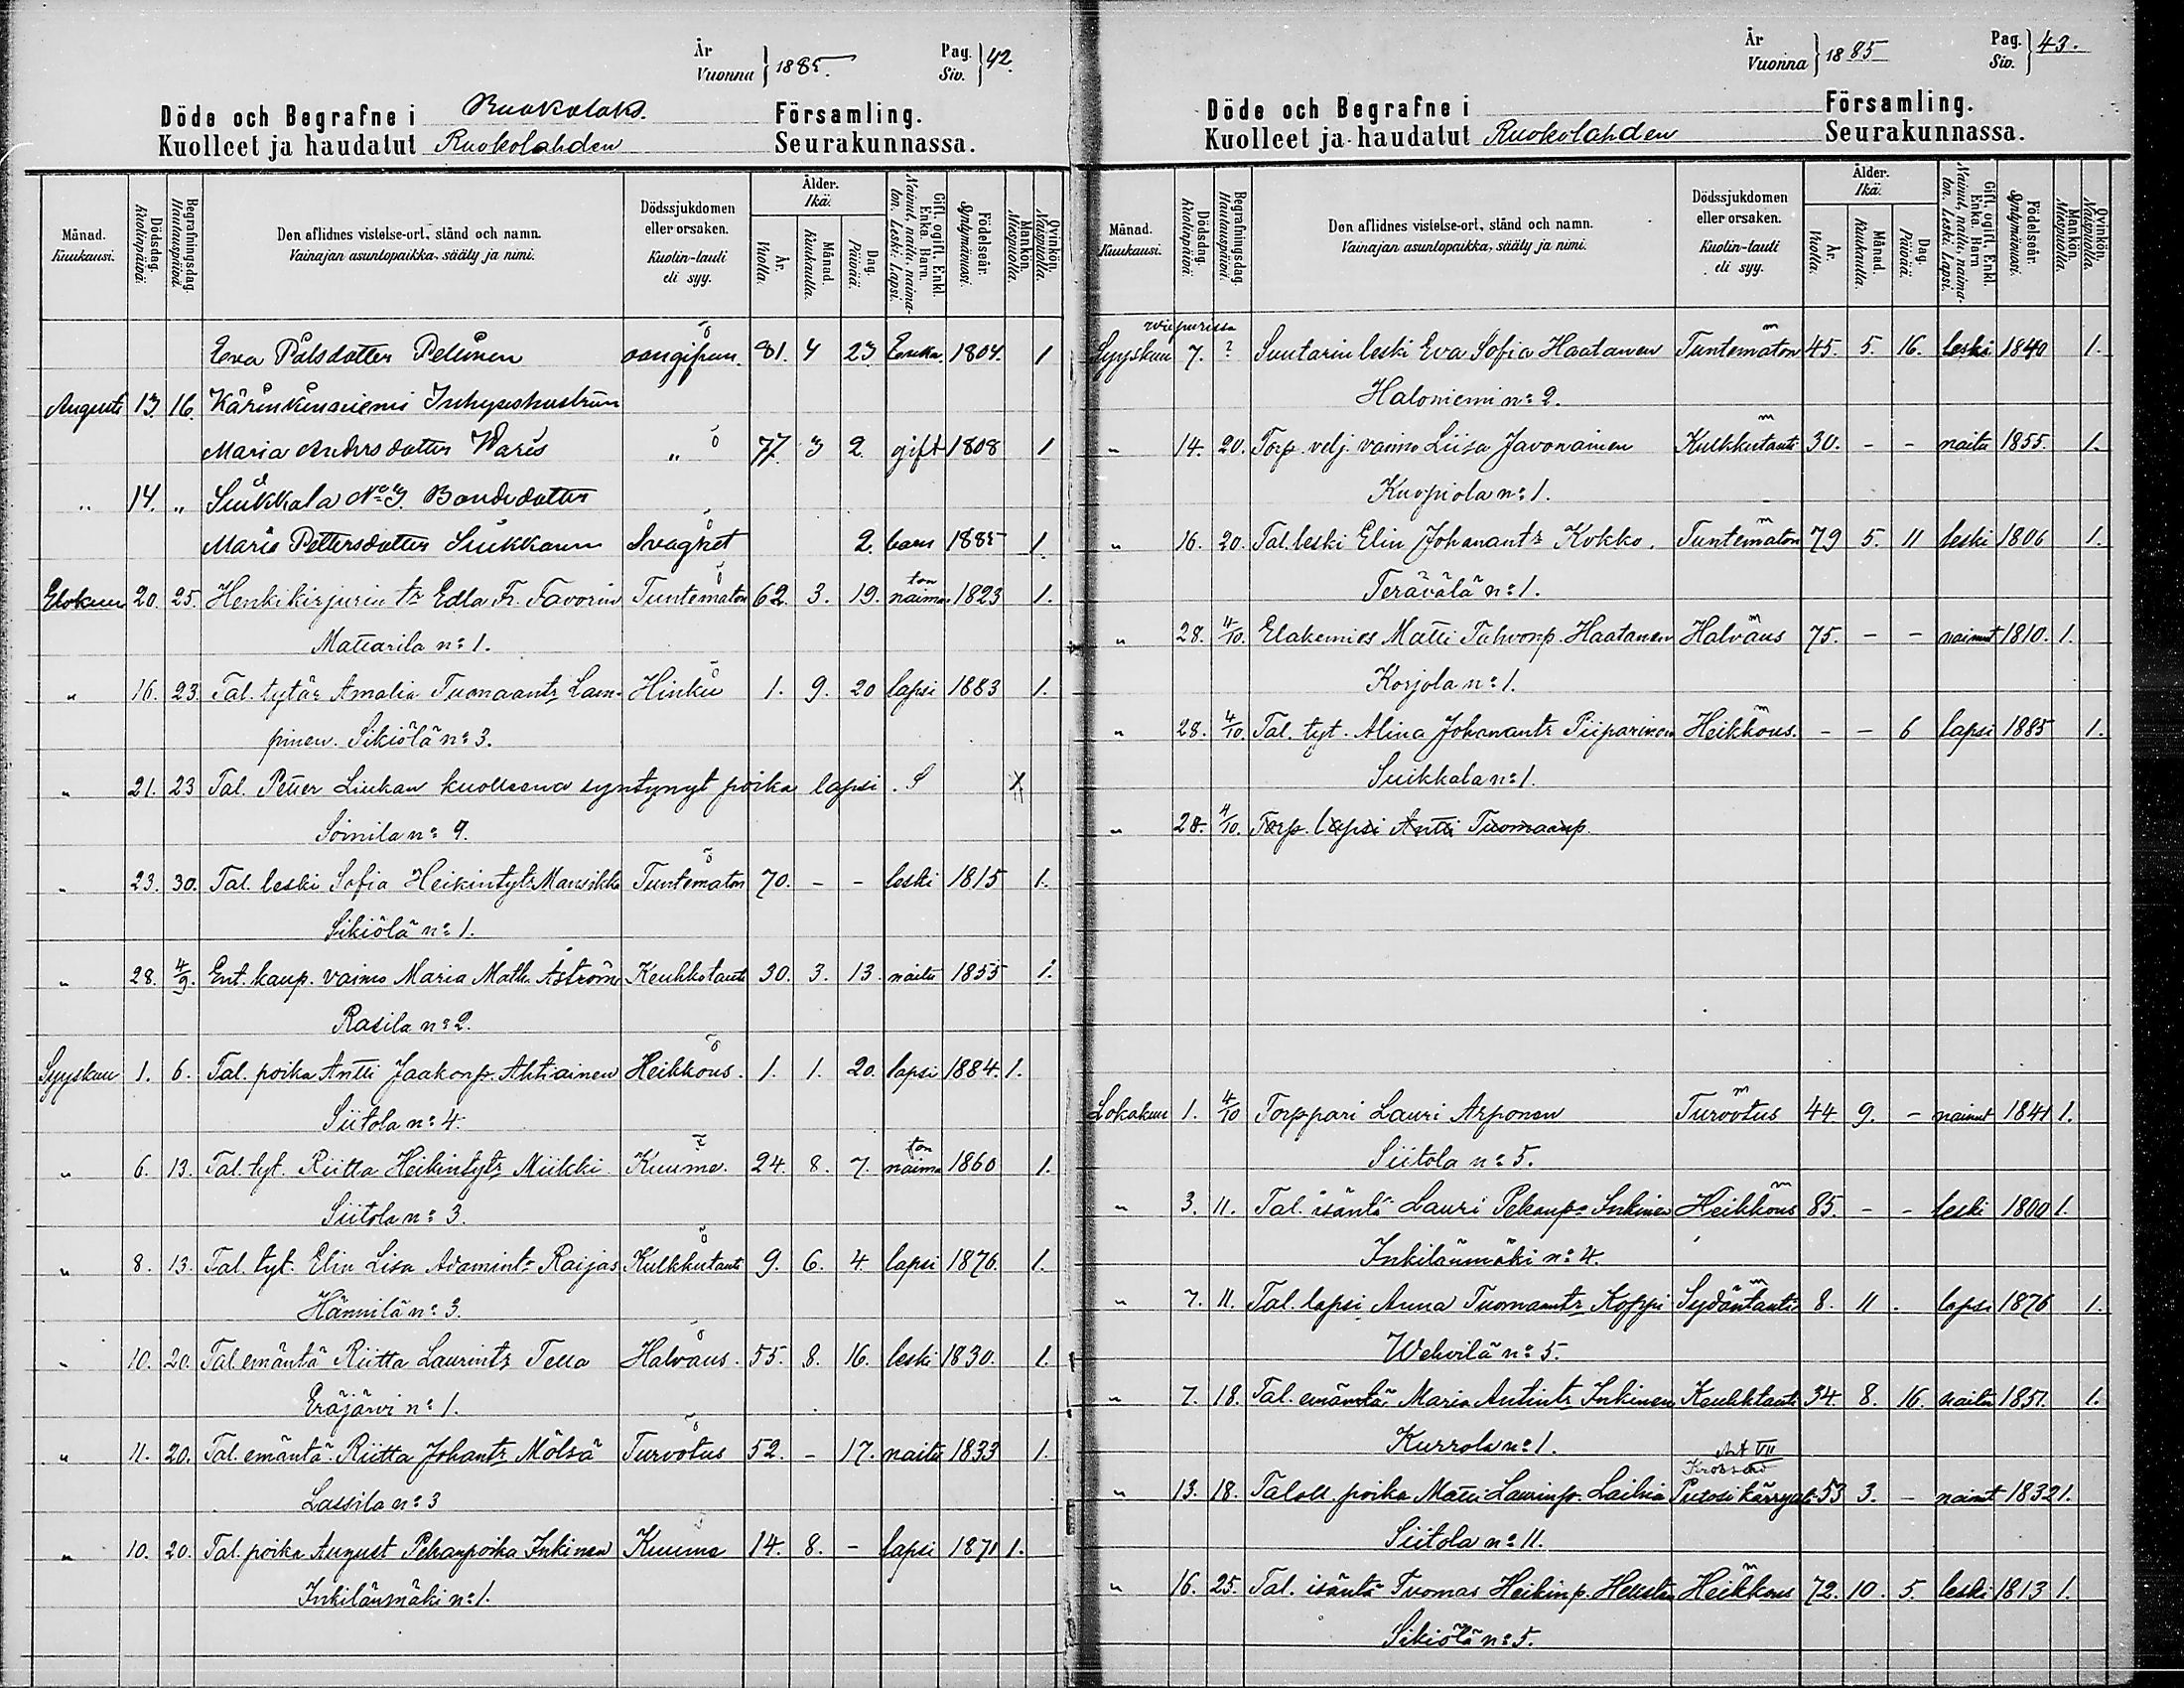 År
Vuonna } 1885. Pag. Siv. } 42.
Döde och Begrafne i Ruokolaks. Församling.
Kuolleet ja haudatut Ruokolahden Seurakunnassa.
Månad. Kuukausi. Dödsdag. Kuolinpäivä. Begrafningsdag. Hautauspäivä. Den aflidnes vistelse-ort, stånd och namn. Vainajan asuntopaikka, sääty ja nimi. Dödssjukdomen eller orsaken. Kuolin-tauti eli syy. Ålder. Ikä. År. Vuotta. Månad. Kuukautta. Dag. Päivää. Gift, ogift, Enkl. Enka. Barn. Nainut, naitu, naimaton. Leski. Lapsi. Födelseår. Syntymävuosi. Mankön. Miespuolia. Qvinkön. Naispuolia.
Eva Pålsdotter Pelünen oangifven. 81. 4 23. Enka. 1804. 1
Augusti 13 16. Inhyseshustrun
Maria Andersdotter Waris „ 77. 3 2. gift 1808 1
„ 14. „ Suikkala No 3. Bondedotter
Maria Pettersdotter Suikkanen Svaghet 2. barn 1885 1.
Elokuu 20. 25. Henkikirjurin tr Edla Fr. Favorin Tuntematon 62. 3. 19. naimaton 1823 1.
Mattarila n:o 1.
„ 16. 23. Tal. tytär Amalia Tuomaantr Lam- Hinku 1. 9. 20 lapsi 1883 1.
pinen. Sikiölä n:o 3.
„ 21. 23 Tal. Petter Liukan kuolleena syntynyt poika lapsi.
Soinila n:o 9.
„ 23. 30. Tal. leski Sofia Heikintytr Mansikka Tuntematon 70. - - leski 1815 1.
Sikiölä n:o 1.
„ 28. 4/9. Ent. kaup. vaimo Maria Math. Åström Keuhkotauti 30. 3. 13. naitu 1855 1.
Rasila n:o 2.
Syyskuu 1. 6. Tal. poika Antti Jaakonp. Ahtiainen Heikkous. 1. 1. 20. lapsi 1884. 1.
Siitola n:o 4.
„ 6. 13. Tal. tyt. Riitta Heikintytr Miikki Kuume. 24. 8. 7. naimaton 1860 1.
Siitola n:o 3.
„ 8. 13. Tal. tyt. Elin Lisa Adamintr Raijas Kulkkutauti 9. 6. 4. lapsi 1876. 1.
Hännilä n:o 3.
„ 10. 20. Tal. emäntä Riitta Laurintr Tella Halvaus. 55. 8. 16. leski 1830. 1.
Eräjärvi n:o 1.
„ 11. 20. Tal. emäntä Riitta Johantr Mölsä Turvotus 52. - 17. naitu 1833 1.
Lassila n:o 3
„ 10. 20. Tal. poika August Pekanpoika Inkinen Kuume 14. 8. - lapsi 1871 1.
Inkilänmäki n:o 1.
År
Vuonna } 1885 Pag. Siv. } 43.
Döde och Begrafne i Församling.
Kuolleet ja haudatut Ruokolahden Seurakunnassa.
Månad. Kuukausi. Dödsdag. Kuolinpäivä. Begrafningsdag. Hautauspäivä. Den aflidnes vistelse-ort, stånd och namn. Vainajan asuntopaikka, sääty ja nimi. Dödssjukdomen eller orsaken. Kuolin-tauti eli syy. Ålder. Ikä. År. Vuotta. Månad. Kuukautta. Dag. Päivää. Gift, ogift, Enkl. Enka. Barn. Nainut, naitu, naimaton. Leski. Lapsi. Födelseår. Syntymävuosi. Mankön. Miespuolia. Qvinkön. Naispuolia.
wiipurissa
Syyskuu 7. ? Suutarin leski Eva Sofia Haatanen Tuntematon 45. 5. 16. leski 1840 1.
Haloniemi n:o 2.
„ 14. 20. Torp. velj. vaimo Liisa Javonainen Kulkkutauti 30. - - naitu 1855. 1.
Kuopiola n:o 1.
„ 16. 20. Tal. leski Elin Johanantr Kokko. Tuntematon 79 5. 11 leski 1806 1.
Terävälä n:o 1.
„ 28. 4/10. Elakemies Matti Tahvonp. Haatanen Halvaus 75. - - nainut 1810. 1.
Korjola n:o 1.
„ 28. 4/10. Tal. tyt. Alina Johanantr Piiparinen Heikkous. - - 6 lapsi 1885 1.
Suikkala n:o 1.
„ 28. 4/10. Torp. lapsi Antti Tuomaanp.
Lokakuu 1. 4/10 Torppari Lauri Arponen Turvotus 44 9. - nainut 1841 1.
Siitola n:o 5.
„ 3. 11. Tal. isäntä Lauri Pekanp. Inkinen Heikkous 85. - - leski 1800 1.
Inkilänmäki n:o 4.
„ 7. 11. Tal. lapsi Anna Tuomaantr Koppi Sydäntauti 8. 11 . lapsi 1876 1.
Wehvilä n:o 5.
„ 7. 18. Tal. emäntä Maria Antintr Inkinen Keuhktauti 34. 8. 16. naitu 1851. 1.
Kurrola n:o 1.
„ 13. 18. Taloll. poika Matti Laurinp. Laihia 53 3. - nainut 1832 1.
Siitola n:o 11.
„ 16. 25. Tal. isäntä Tuomas Heikinp. Heikkous 72. 10. 5. leski 1813 1.
Sikiölä n:o 5.